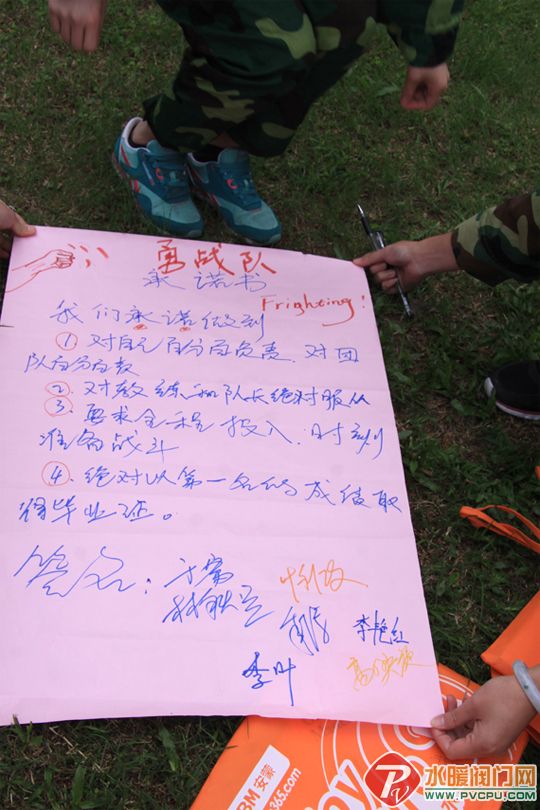 勇战队
承诺书
Frighting!
我们承诺做到
① 对自己百分百负责、对团
队百分百
② 对教练和队长绝对服从
③ 要求全程投入、时刻
准备战斗
④ 绝对以第一名的成绩取
得毕业证。
签名:
李艳红
李叶
BM 安蒙
365.com
水暖阀门网
WWW.PVCPU.COM